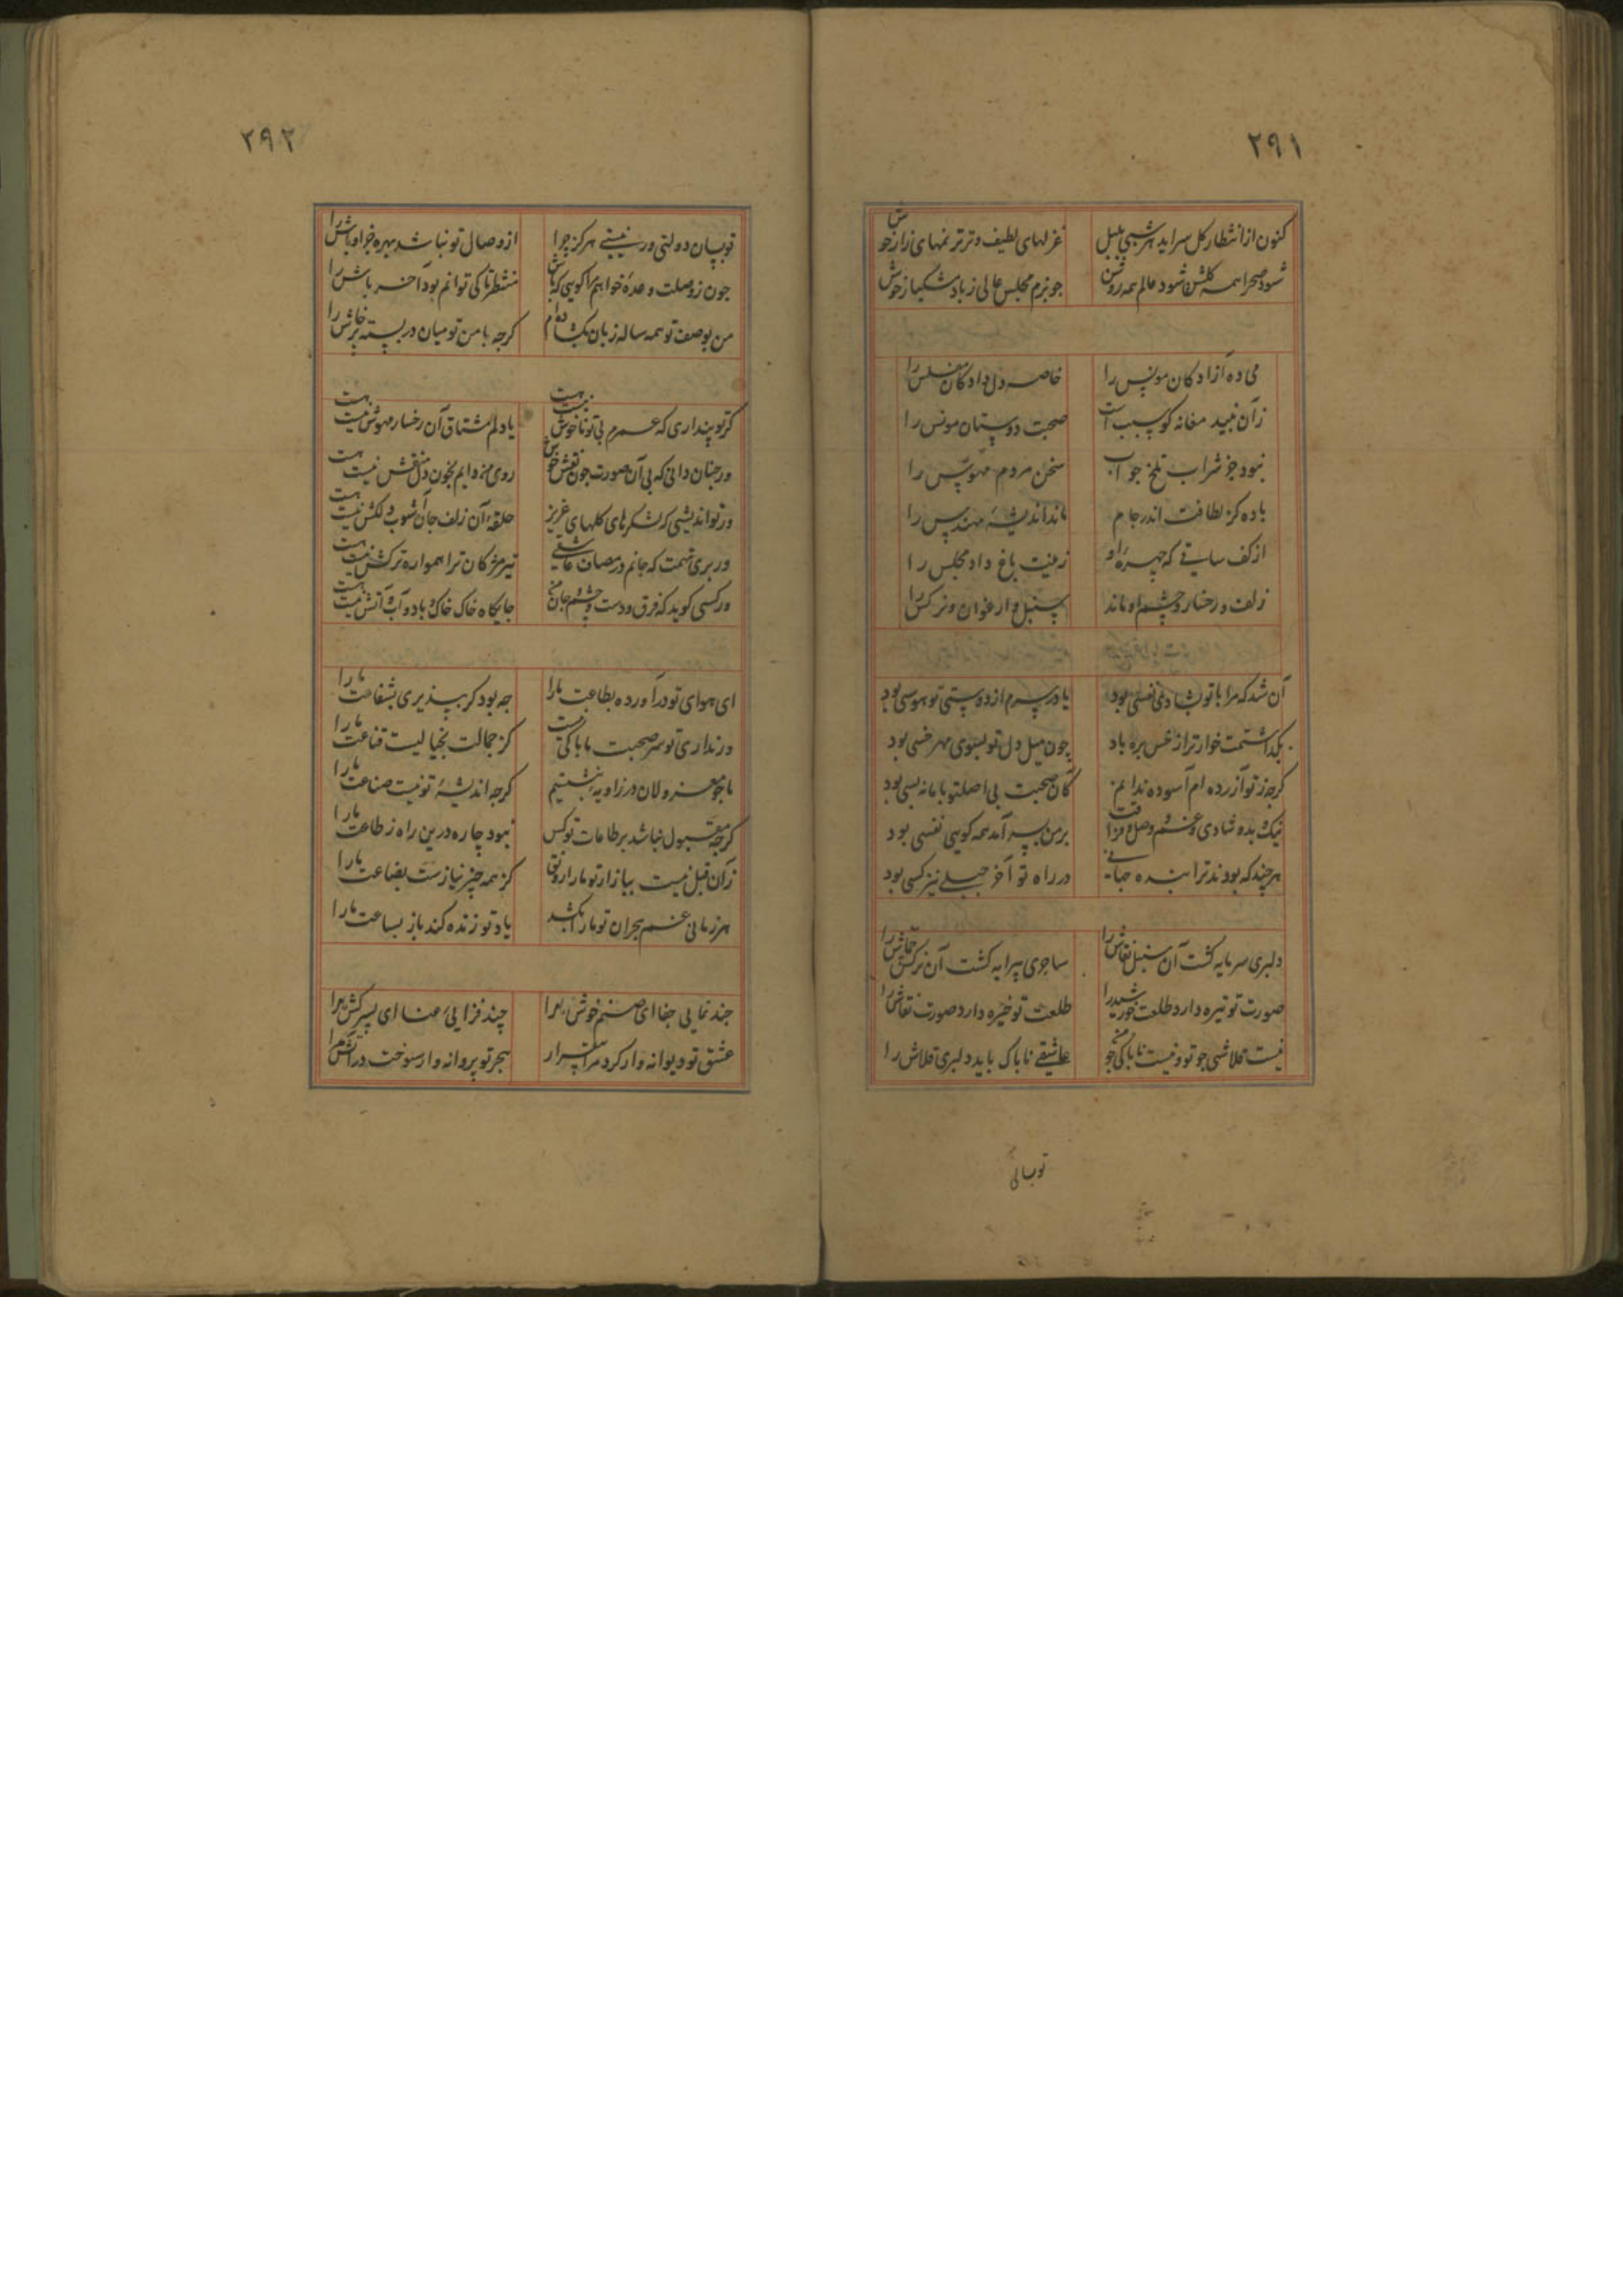 ۲۹۱
کنون از انتظار کل سراید هر شبی بلبل
غزلهای لطیف و تر ترنمهای زار خوش
شود صحرا همه کلشن شود عالم همه روشن
جو بزم مجلس عالی ز باد مشکبار خوش
می ده آزادکان مونس را
خاصه دل دادکان مفلس را
زان نبید مغانه کو سبب است
صحبت دوستان مونس را
نبود جز شراب تلخ جواب
سخن مردم مهوس را
باده کز لطافت اندر جام
ماند اندیشهٔ مهندس را
از کف ساقی که چهرهٔ او
زینت باغ داد مجلس را
زلف و رخسار و چشم او ماند
سنبل و ارغوان و نرکس را
آن شد که مرا با تو بشادی نفسی بود
یا در سرم از دوستی تو هوسی بود
بکذاشتمت خوارتر از خس بره باد
چون میل دل تو بسوی هر خسی بود
کرجه ز تو آزرده ام آسوده ندانم
کان صحبت بی اصل تو با ما نه بسی بود
نیک و بد و شادی و غم و وصل و فراقت
بر من بسر آمد همه کویی نفسی بود
هر چند که بودند ترا بنده جهانی
در راه تو آخر جبلی نیز کسی بود
دلبری سرمایه کشت آن سنبل نقاش را
ساحری پیرایه کشت آن نرکس جماش را
صورت تو تیره دارد طلعت خورشید را
طلعت تو خیره دارد صورت نقاش را
نیست قلاشی جو تو و نیست ناباکی جو من
عاشقی ناباک باید دلبری قلاش را
۲۹۲
توبسان دولتی ور نیستی هرکز چرا
از وصال تو نباشد بهره جز اوباش را
جون ز وصلت وعده خواهم مرا کویی که باش
منتظر تا کی توانم بود آخر باش را
من بوصف تو همه ساله زبان بکشاده ام
کرجه با من تو میان در بسته پرخاش را
کر تو پنداری که عمرم بی تو ناخوش نیست هست
یا دلم مشتاق آن رخسار مهوش نیست هست
ور جنان دانی که بی آن صورت جون نقش خوش
روی من دایم بخون دل منقش نیست هست
ور تو اندیشی که لشکرهای دلهای عزیز
حلقهٔ آن زلف جان آشوب دلکش نیست هست
ور بری تهمت که جانم در مصاف عاشقی
تیر مژکان ترا همواره ترکش نیست هست
ور کسی کوید که فرق و دست و چشم و جان من
جایکاه خاک خاک و باد و آب و آتش نیست هست
ای هوای تو درآورده بطاعت ما را
جه بود کر بپذیری بشفاعت ما را
ور نداری تو سر صحبت ما باکی نیست
کز جمالت بخیالیست قناعت ما را
ما جو معزولان در زاویه بنشستیم
کرجه اندیشهٔ تو نیست صناعت ما را
کرجه مقبول نباشد بر طاعات تو کس
نبود چاره درین راه ز طاعت ما را
زان قبل نیست ببازار تو ما را رونق
کز همه چیز نیازست بضاعت ما را
هر زمانی غم هجران تو ما را بکشد
یاد تو زنده کند باز بساعت ما را
جند نمایی جفا ای صنم خوش مرا
چند فزایی عنا ای پسر کش مرا
عشق تو دیوانه وار کرد مرا سنکسار
هجر تو پروانه وار سوخت در آتش مرا